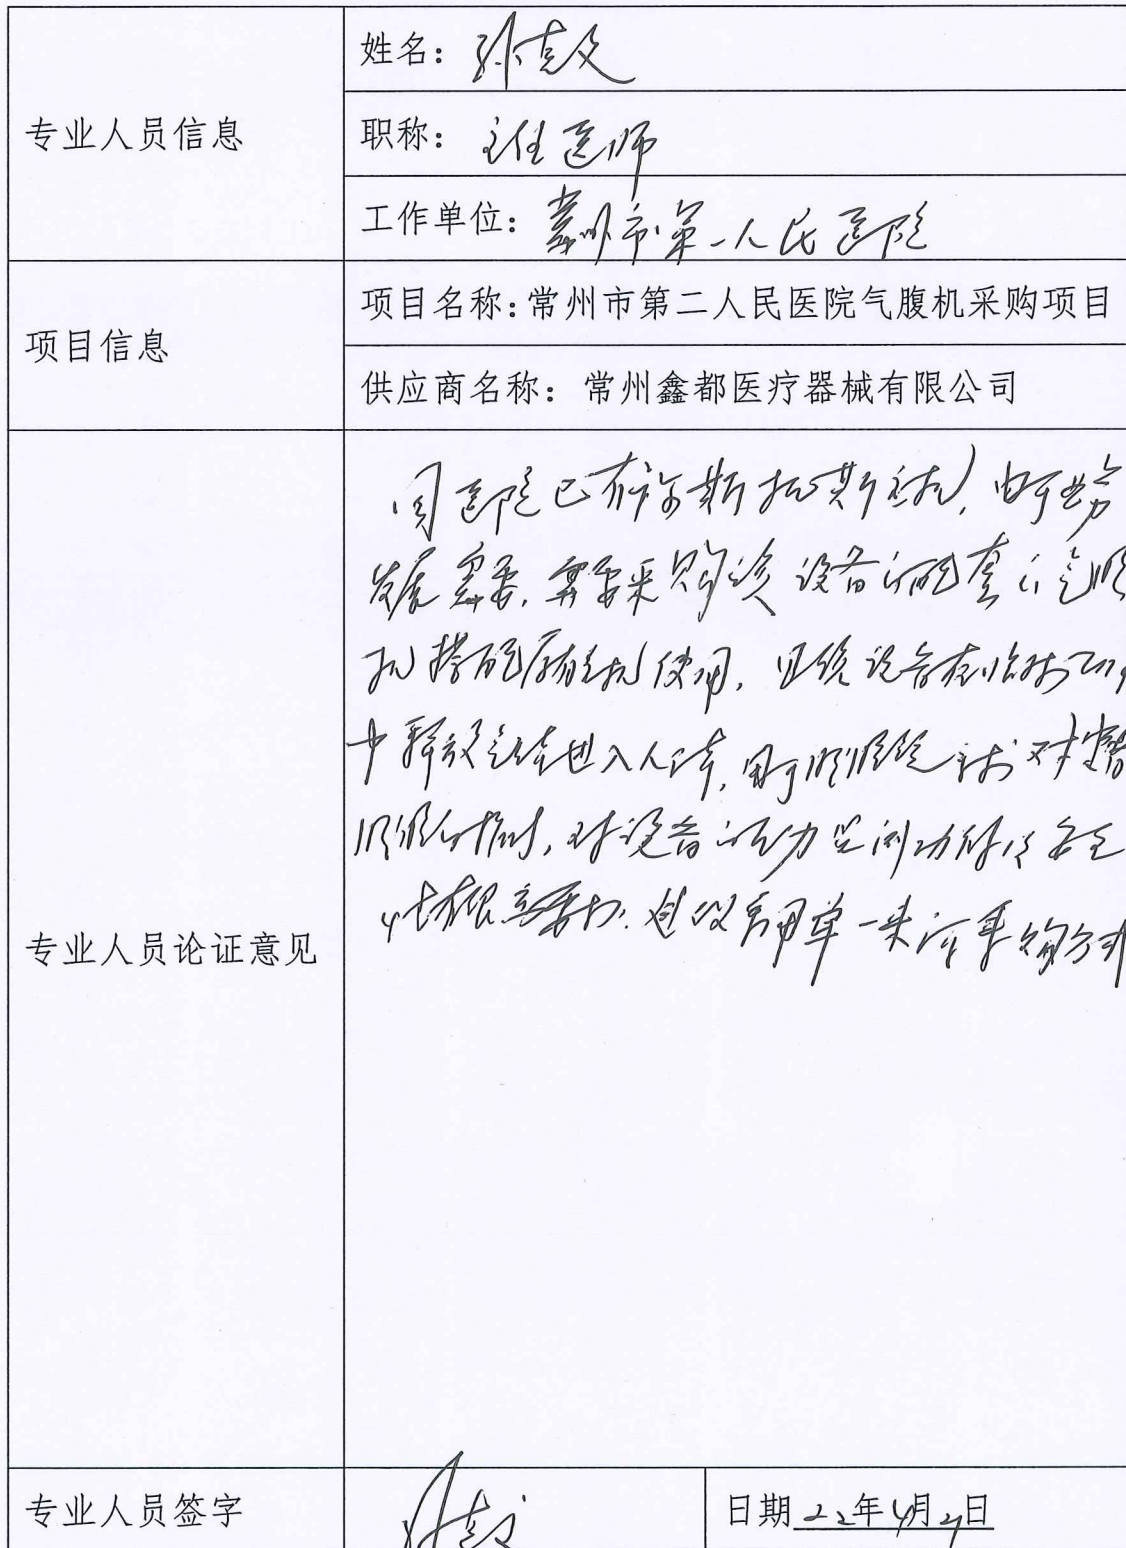 专业人员信息
姓名: 孙克文
职称: 主任医师
工作单位: 常州市第一人民医院
项目信息
项目名称:常州市第二人民医院气腹机采购项目
供应商名称: 常州鑫都医疗器械有限公司
专业人员论证意见
因医院已有卡尔斯托斯主机,由于业务
发展需要,需要采购该设备的配套的气腹
机搭配原有主机使用,
中释放气体进入人体,用于腹腔镜手术
对设备的压力监测功能及安全
性有很高要求。建议采用单一来源采购方式
专业人员签字
日期 22年4月 日